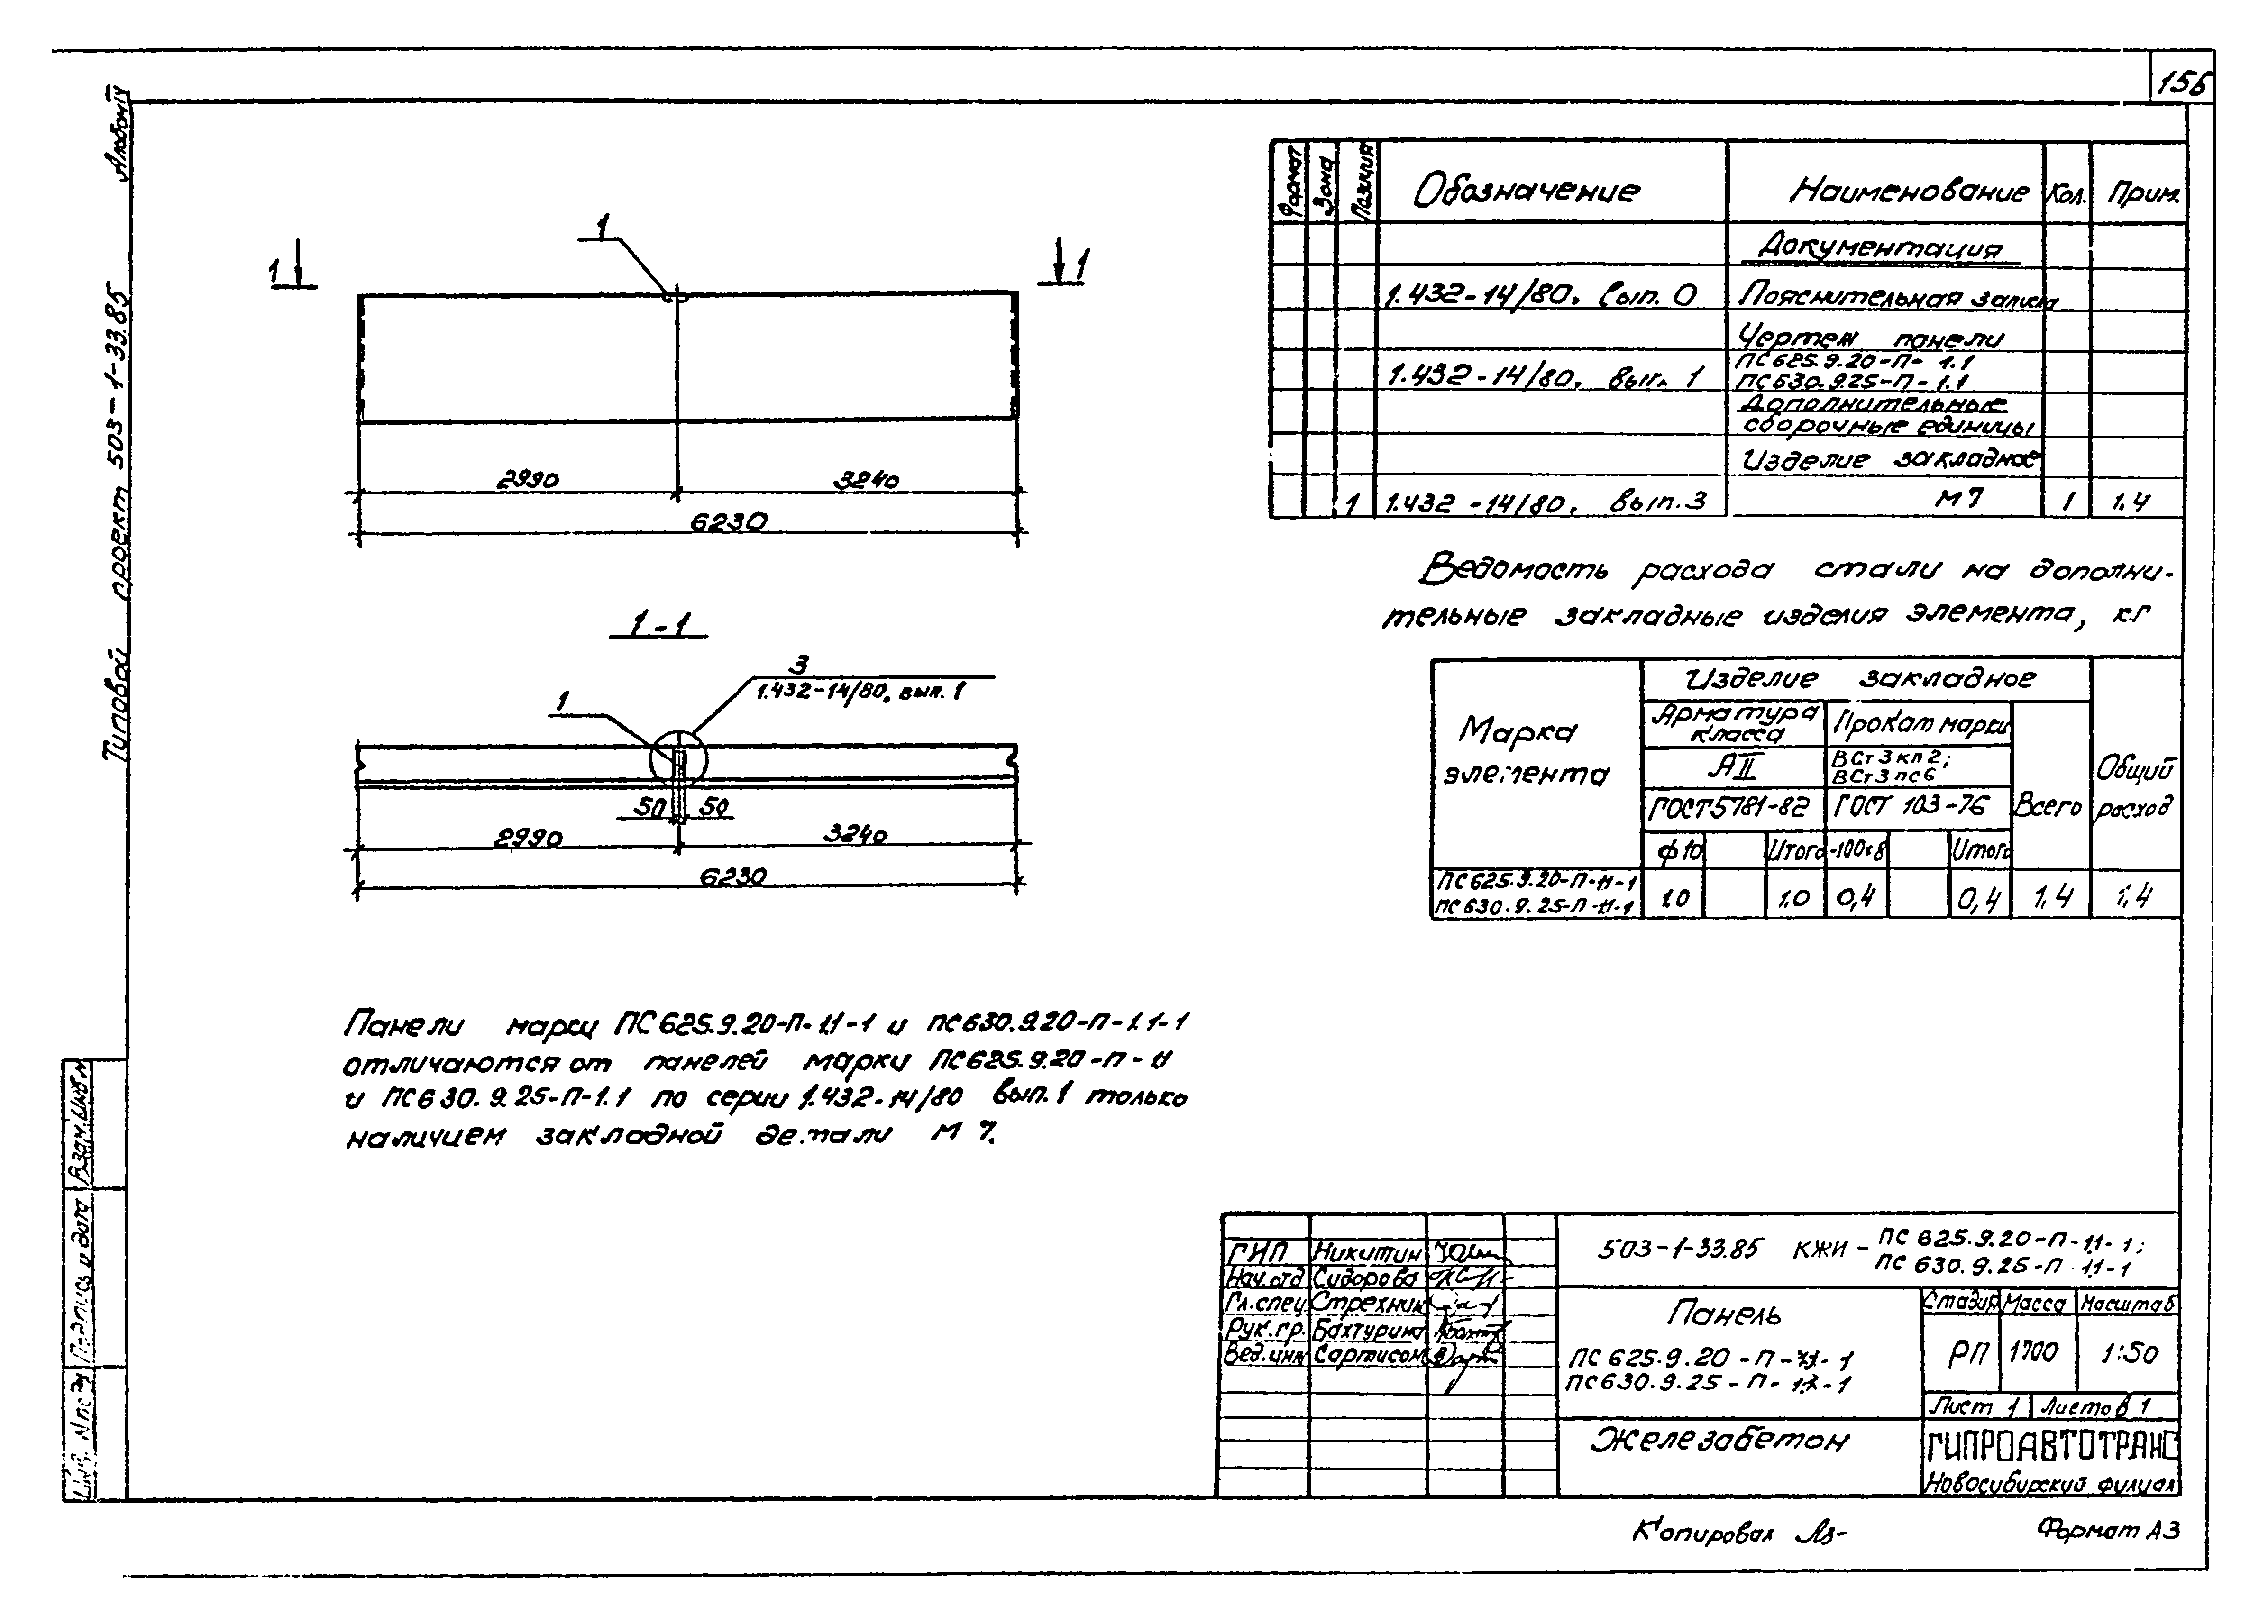 156
Альбом IV
Типовой проект 503-1-33.85
1
1
1
2990
3240
6230
1-1
3
1.432-14/80, вып. 1
1
50
50
2990
3240
6230
Панели марки ПС625.9.20-П-1.1-1 и ПС630.9.20-П-1.1-1
отличаются от панелей марки ПС625.9.20-П-11
и ПС630.9.25-П-1.1 по серии 1.432-14/80 вып.1 только
наличием закладной детали М 7.
Формат
Зона
Позиция
Обозначение
Наименование
Кол.
Прим.
Документация
1.432-14/80, вып. 0
Пояснительная записка
Чертеж панели
ПС625.9.20-П-1.1
1.432-14/80, вып. 1
ПС630.9.25-П-1.1
Дополнительные
сборочные единицы
Изделие закладное
1
1.432-14/80, вып.3
М 7
1
1.4
Ведомость расхода стали на дополни-
тельные закладные изделия элемента, кг
Марка
элемента
Изделие закладное
Арматура
класса
Прокат марки
АII
ВСт3кп2;
ВСт3пс6
ГОСТ5781-82
ГОСТ 103-76
Всего
Общий
расход
ф10
Итого
-100x8
Итого
ПС625.9.20-П-11-1
ПС630.9.25-П-11-1
1.0
1.0
0,4
0,4
1,4
1,4
ГИП
Никитин
Нач.отд
Сидорова
Гл.спец
Стрехнин
Рук.гр.
Бахтурина
Вед.инж
Сартисон
503-1-33.85 КЖИ-
ПС 625.9.20-П-1.1-1;
ПС 630.9.25-П-1.1-1
Панель
ПС 625.9.20-П-1.1-1
ПС630.9.25-П-1.1-1
Стадия
Масса
Масштаб
РП
1700
1:50
Лист 1
Листов 1
Железабетон
ГИПРОАВТОТРАНС
Новосибирский филиал
Взам.инв.N
Подпись и дата
Инв. N подл
Копировал
Формат А3